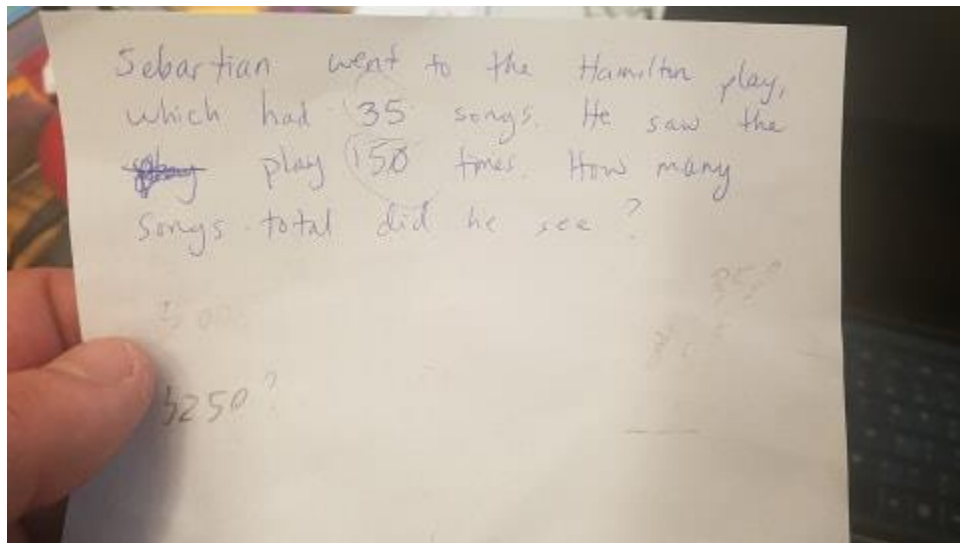 Sebastian went to the Hamilton play,
which had 35 songs. He saw the
play 150 times. How many
songs total did he see?
5250?